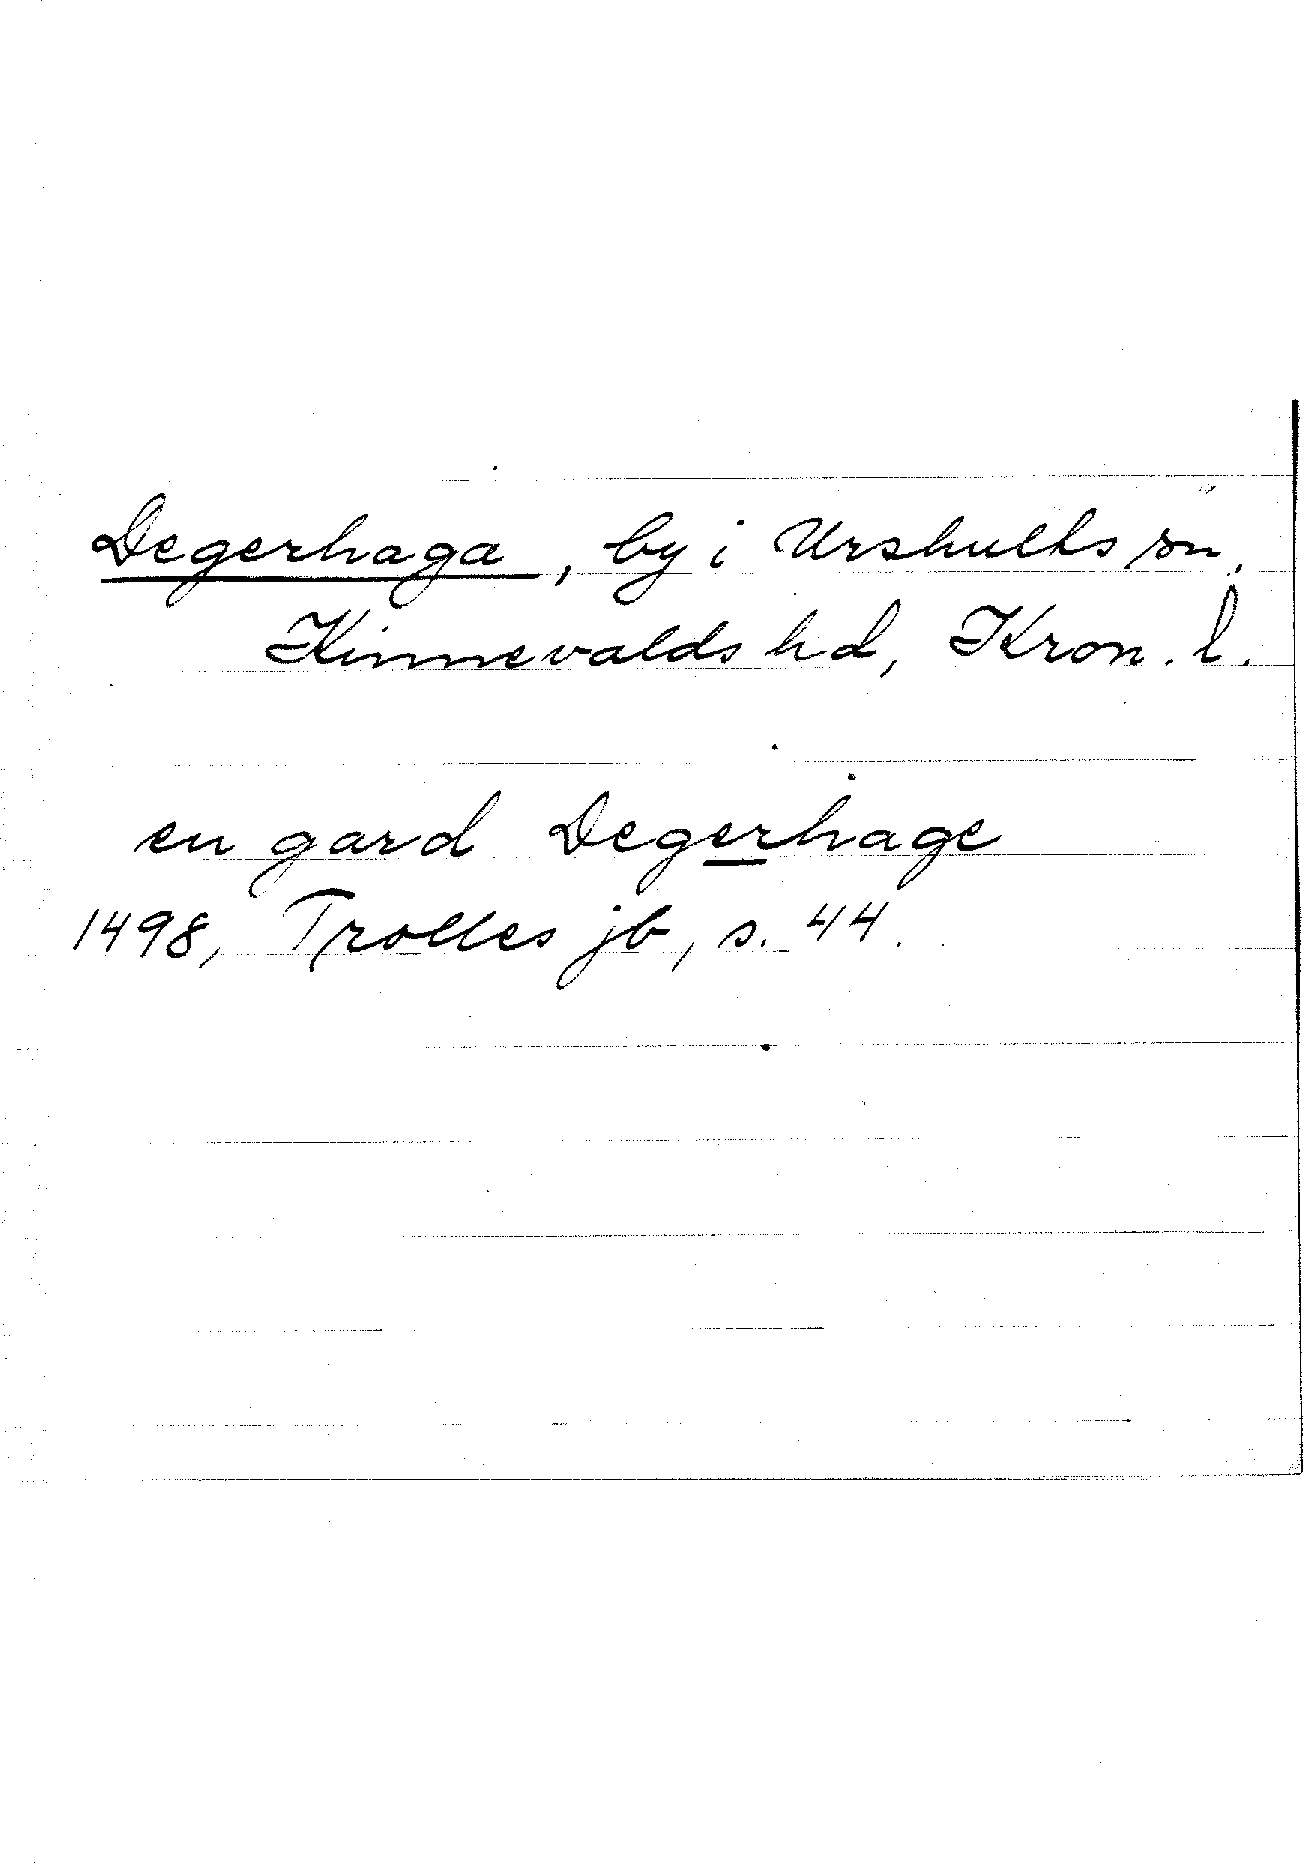 Degerhaga, by i Urshults sn,
Kinnevalds hd, Kron. l.
en gard Degerhage
1498, Trolles jb, s. 44.